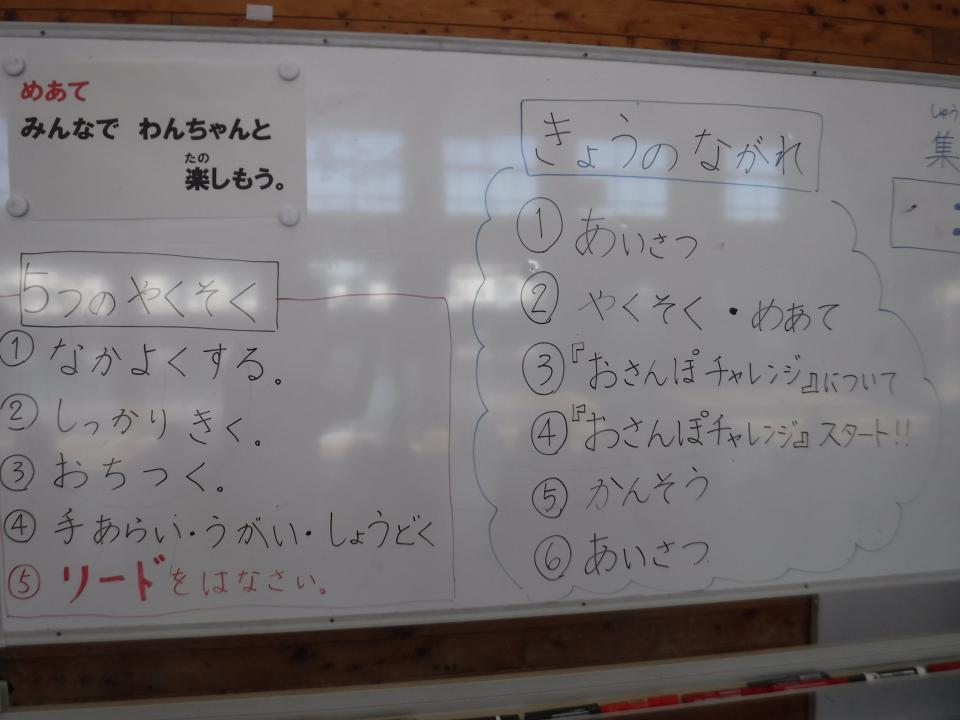 めあて
みんなで わんちゃんと
たの
楽しもう。
5つの やくそく
① なかよくする。
② しっかり きく。
③ おちつく。
④ 手あらい・うがい・しょうどく
⑤ リードをはなさない。
きょうの ながれ
① あいさつ
② やくそく・めあて
③『おさんぽチャレンジ』について
④『おさんぽチャレンジ』スタート!!
⑤ かんそう
⑥ あいさつ
しゅう
集